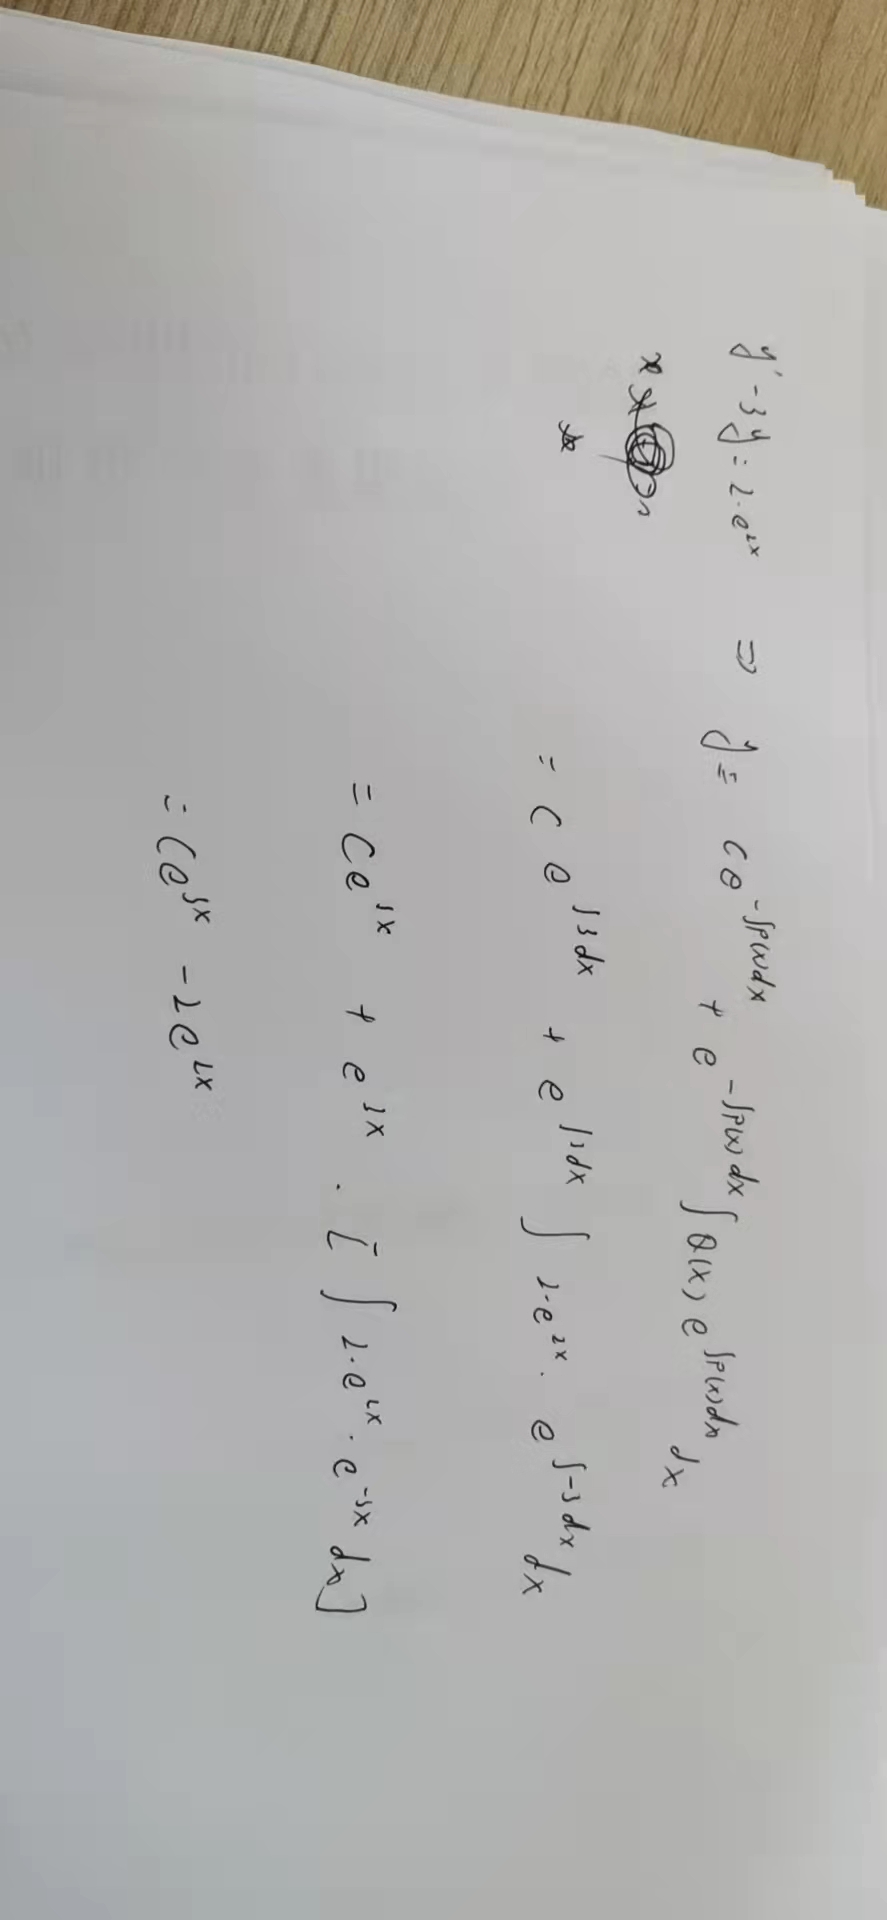 y' - 3y = 2·e^{2x} ⇒ y = Ce^{-∫P(x)dx} + e^{-∫P(x)dx} ∫ Q(x) e^{∫P(x)dx} dx
= C e^{∫3dx} + e^{∫3dx} ∫ 2·e^{2x} · e^{∫-3dx} dx
= Ce^{3x} + e^{3x} · [∫ 2·e^{2x} · e^{-3x} dx]
= Ce^{3x} - 2e^{2x}